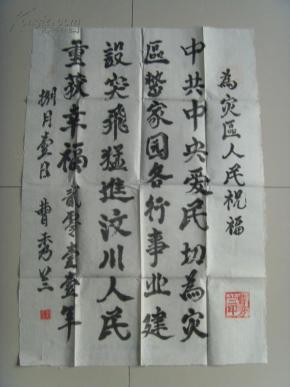 為灾區人民祝福
中共中央爱民切為灾
區整家园各行事业建
設突飛猛進汶川人民
重获幸福貳零壹壹年
捌月壹日 曹秀兰